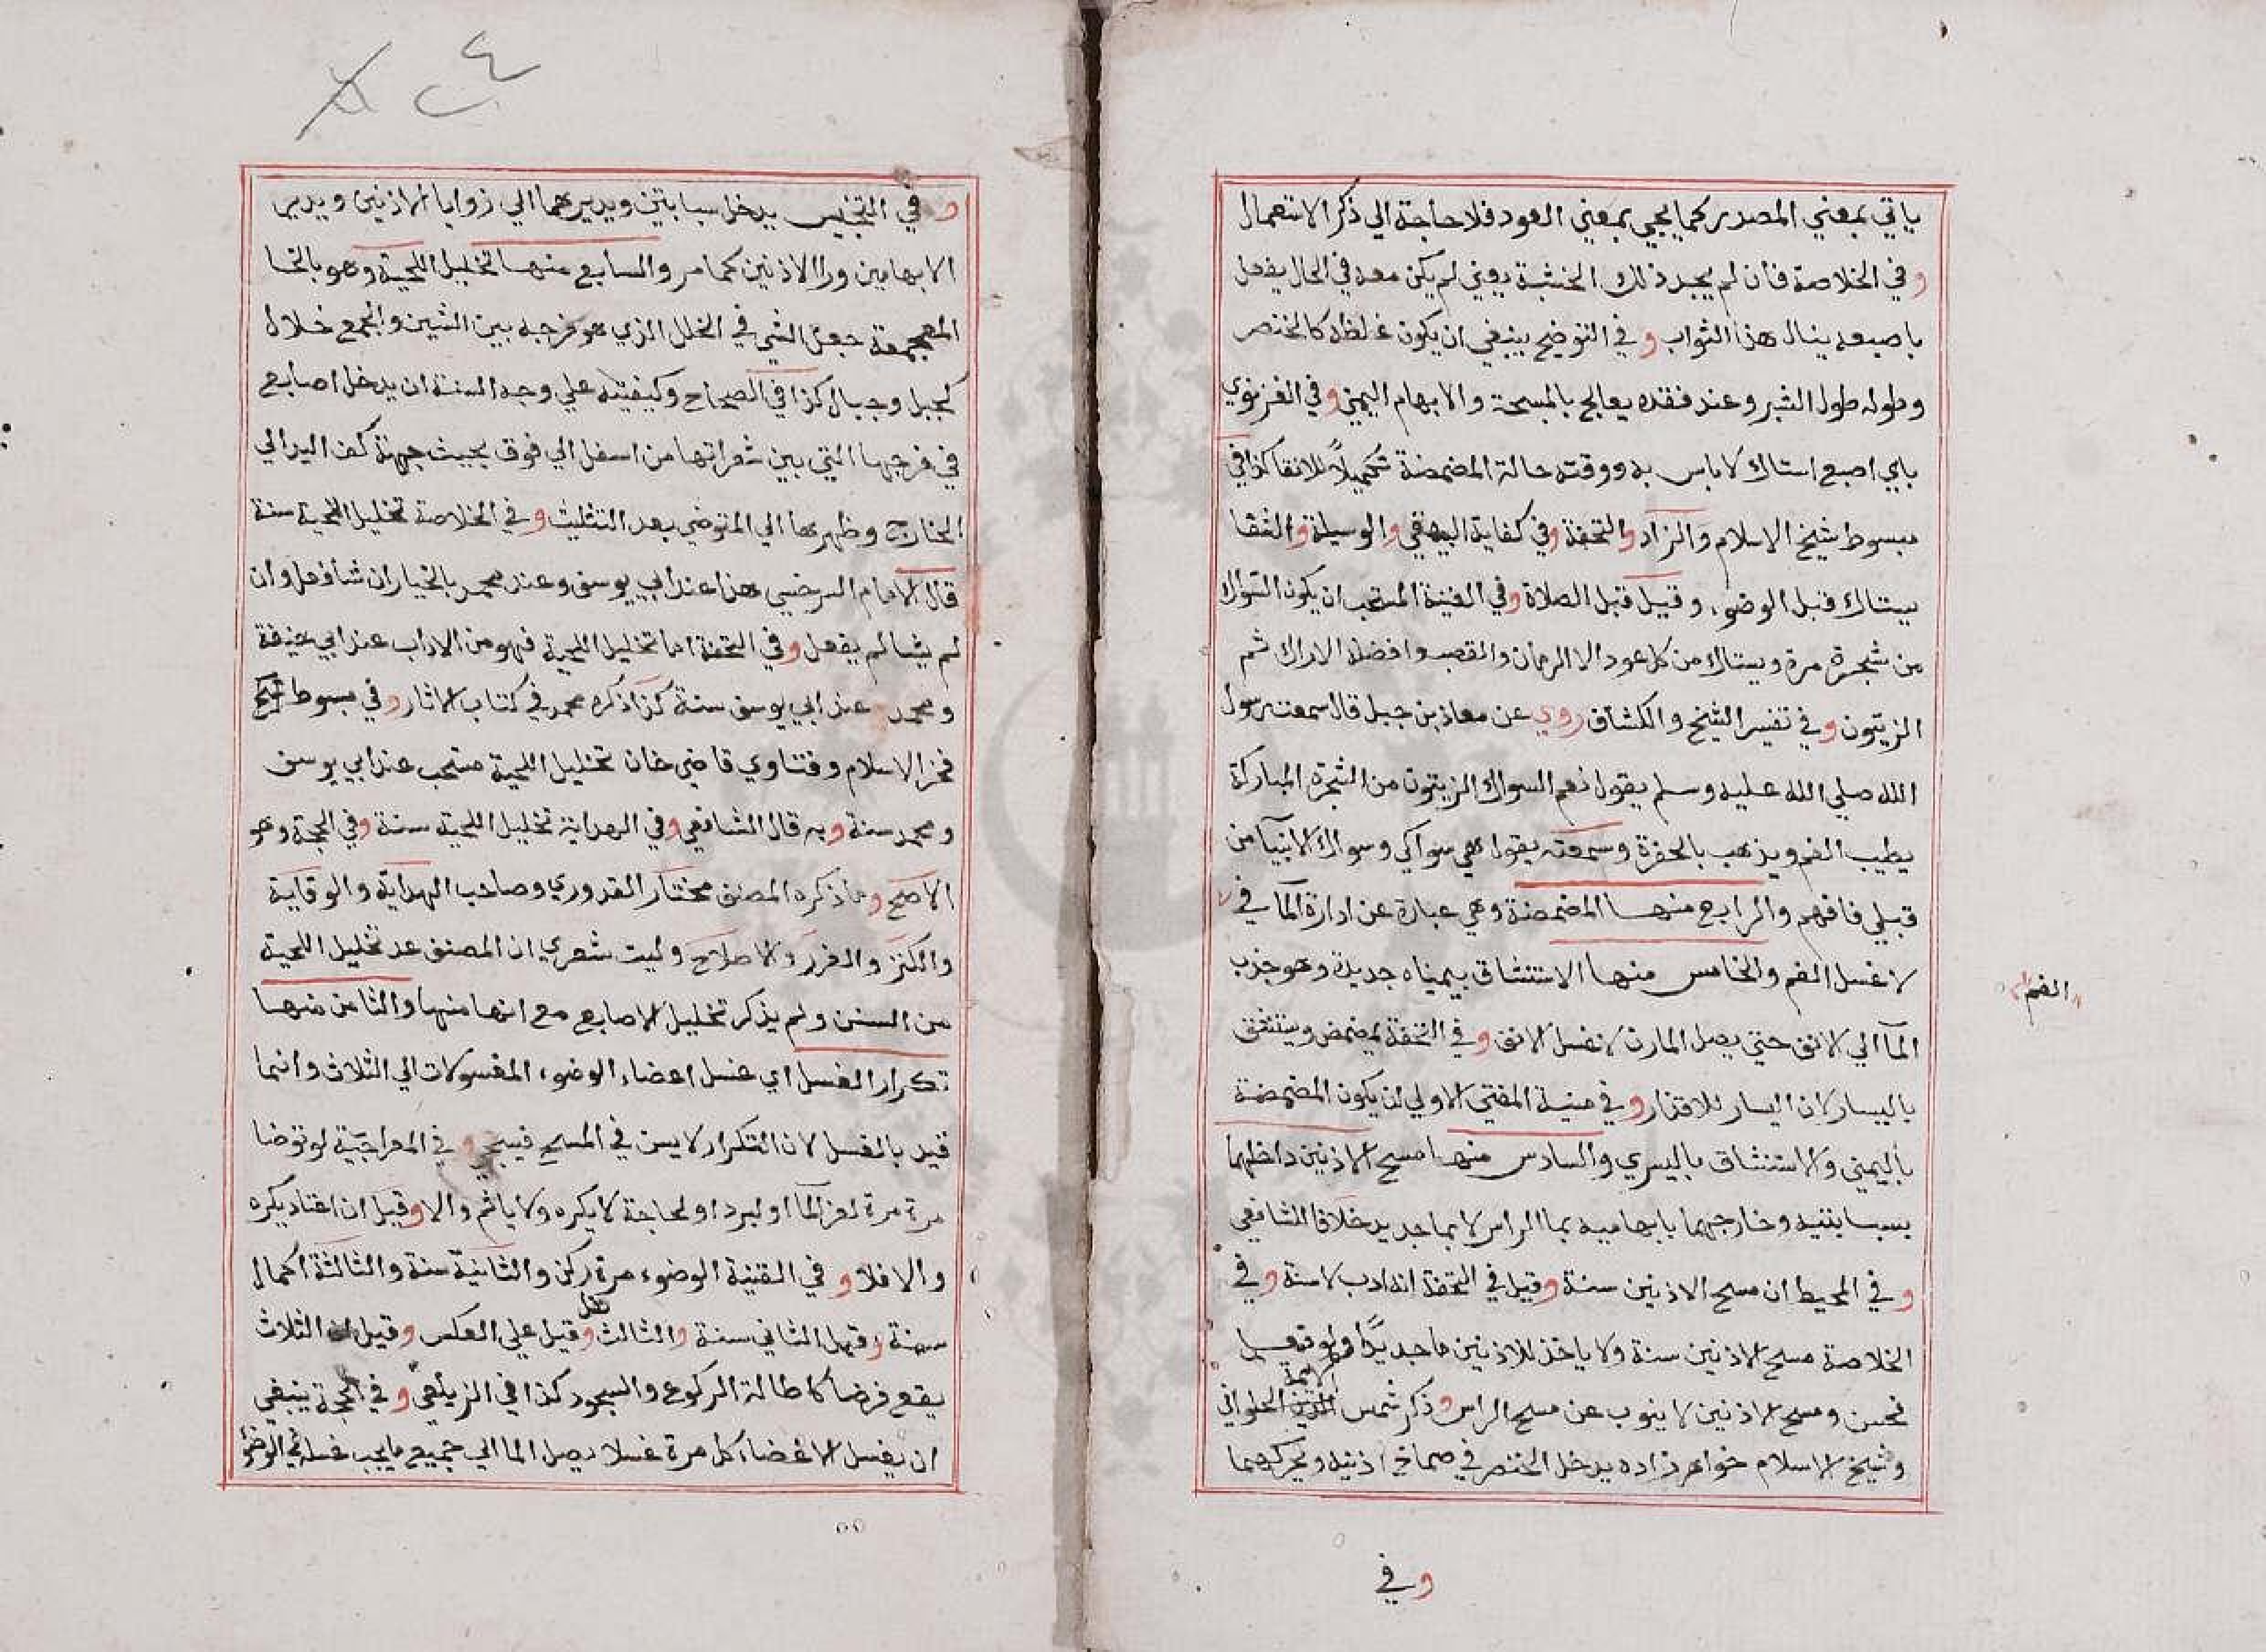 ياتي بمعني المصدر كما يجي بمعني العود فلا حاجة الي ذكر الاستعمال
وفي الخلاصة فان لم يجد ذلك الخشبة يعني لم يكن معه في الحال يفعل
باصبعه ينال هذا الثواب وفي التوضيح ينبغي ان يكون غلظه كالخنصر
وطوله طول الشبر وعند فقده يعالج بالمسبحة والابهام اليمني وفي الغزنوي
باي اصبع استاك لا باس به ووقته حالة المضمضة تكميلاً للانقا كذا في
مبسوط شيخ الاسلام والزاد والتحفة وفي كفاية البيهقي والوسيلة والشفا
يستاك قبل الوضوء وقيل قبل الصلاة وفي القنية المستحب ان يكون السواك
من شجرة مرة ويستاك من كل عود الا الرمان والقصب وافضله الاراك ثم
الزيتون وفي تفسير الشيخ والكشاف روي عن معاذ بن جبل قال سمعت رسول
الله صلي الله عليه وسلم يقول نعم السواك الزيتون من الشجرة المباركة
يطيب الفم ويذهب بالحفرة وسمعته يقول هي سواكي وسواك الانبيآ من
قبلي فافهم والرابع منها المضمضة وهي عبارة عن ادارة المآ في
الفم
لا غسل الفم والخامس منها الاستنشاق بمياه جديدة وهو جذب
المآ الي الانف حتي يصل المارن لا غسل الانف وفي التحفة يمضمض ويستنشق
باليسار لان اليسار للاقذار وفي منية المفتي الاولي ان يكون المضمضة
باليمني والاستنشاق باليسري والسادس منها مسح الاذنين داخلهما
بسبابتيه وخارجهما بابهاميه بما الراس لا بما جديد خلافا للشافعي
وفي المحيط ان مسح الاذنين سنة وقيل في التحفة انه ادب لا سنة وفي
الخلاصة مسح الاذنين سنة ولا ياخذ للاذنين ما جديدًا ولو فعل
فحسن ومسح الاذنين لا ينوب عن مسح الراس وذكر شمس الائمة الحلواني
وشيخ الاسلام خواهر زاده يدخل الخنصر في صماخ اذنيه ويحركهما
وفي
٤
وفي التجنيس يدخل سبابتين ويديرهما الي زوايا الاذنين ويدير
الابهامين ورا الاذنين كما مر والسابع منها تخليل اللحية وهو بالخا
المعجمة جعل الشي في الخلل الذي هو فرجه بين الشين والجمع خلال
كجبل وجبال كذا في الصحاح وكيفيته علي وجه السنة ان يدخل اصابع
في فرجها التي بين شعراتها من اسفل الي فوق بحيث جهة كف اليد الي
الخارج وظهرها الي المتوضي بعد التثليث وفي الخلاصة تخليل اللحية سنة
قال الامام السرخسي هذا عند ابي يوسف وعند محمد بالخيار ان شا فعل وان
لم يشا لم يفعل وفي التحفة اما تخليل اللحية فهو من الاداب عند ابي حنيفة
ومحمد عند ابي يوسف سنة كذا ذكره محمد في كتاب الاثار وفي مبسوط شيخ
فخر الاسلام وفتاوي قاضي خان تخليل اللحية مستحب عند ابي يوسف
ومحمد سنة وبه قال الشافعي وفي الهداية تخليل اللحية سنة وفي الحجة وهو
الاصح وما ذكره المصنف مختار القدوري وصاحب الهداية والوقاية
والكنز والدرر والاصلاح وليت شعري ان المصنف عد تخليل اللحية
من السنن ولم يذكر تخليل الاصابع مع انها منها والثامن منها
تكرار الغسل اي غسل اعضاء الوضوء المغسولات الي الثلاث وانما
قيد بالغسل لان التكرار لا يسن في المسح وفي المعراجية لو توضا
مرة مرة لعز المآ او لبرد او لحاجة لا يكره ولا ياثم والا وقيل ان اعتاد يكره
والا فلا وفي القنية الوضوء مرة ركن والثانية سنة والثالثة اكمال
سنة وقيل الثاني سنة والثالث نفل وقيل علي العكس وقيل الثلاث
يقع فرضا كاطالة الركوع والسجود كذا في الزيلعي وفي الحجة ينبغي
ان يغسل الاعضا كل مرة غسلا يصل الما الي جميع ما يجب غسله في الوضوء